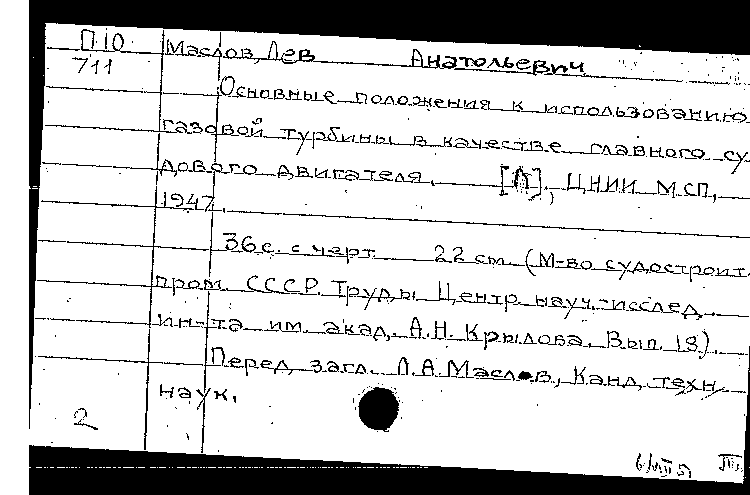 П10 Маслов, Лев Анатольевич
711
Основные положения к использованию
газовой турбины в качестве главного су-
дового двигателя. [Л], ЦНИИ МСП,
1947.
36 с. с черт. 22 см. (М-во судостроит.
пром. СССР. Труды Центр. науч.-исслед.
ин-та им. акад. А.Н. Крылова. Вып. 18).
Перед загл. Л.А. Маслов, Канд. техн.
наук.
2